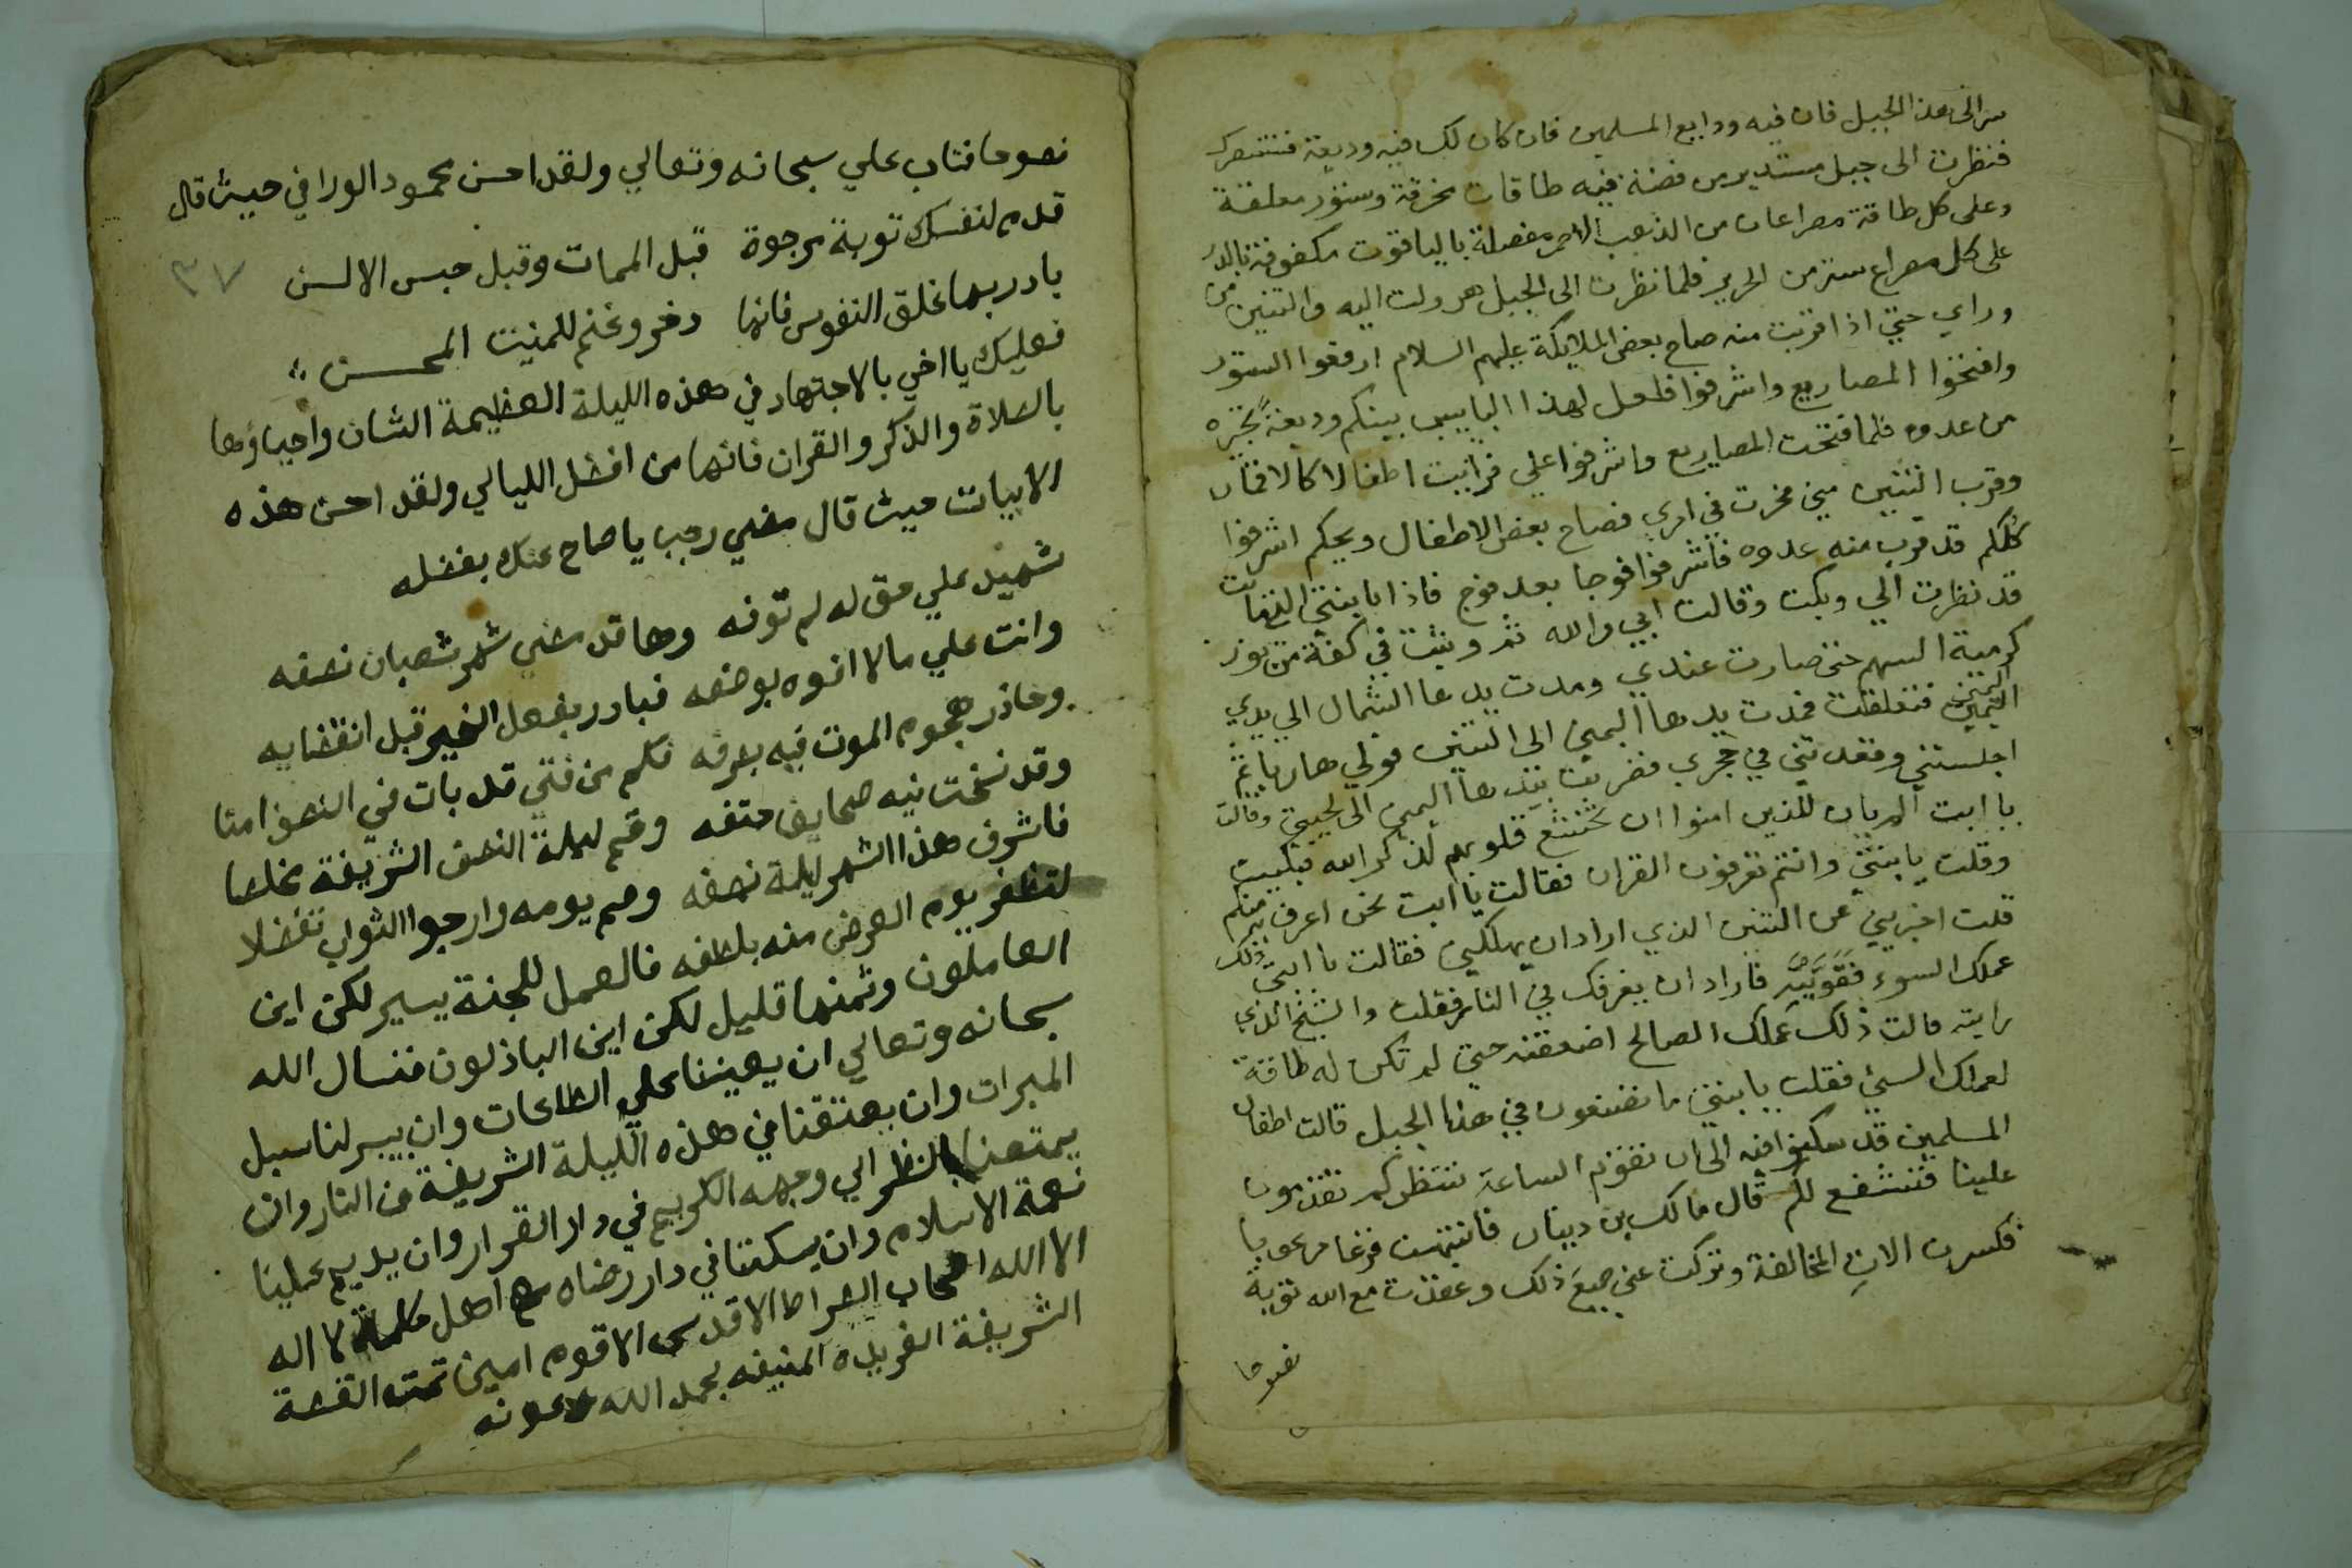 سر الى هذا الجبل فان فيه ودايع المسلمين فان كان لك فيه وديعة فستنصرك
فنظرت الى جبل مستدير من فضة فيه طاقات مخرقة وستور معلقة
وعلى كل طاقة مصراعان من الذهب الاحمر مفصلة بالياقوت مكفوفة بالدر
على كل مصراع ستر من الحرير فلما نظرت الى الجبل هرولت اليه والتنين من
وراي حتي اذا قربت منه صاح بعض الملايكة عليهم السلام ارفعوا الستور
وافتحوا المصاريع واشرفوا فلعل لهذا البايس بينكم وديعة تجيره
من عدوه فلما فتحت المصاريع واشرفوا علي فرايت اطفالا كالاقمار
وقرب التنين مني فحرت في امري فصاح بعض الاطفال ويحكم اشرفوا
كلكم قد قرب منه عدوه فاشرفوا فوجا بعد فوج فاذا بابنتي التي ماتت
قد نظرت الي وبكت وقالت ابي والله ثم وثبت في كفة من نور
كرمية السهم حتى صارت عندي ومدت يدها الشمال الي يدي
اليمين فتعلقت فمدت يدها اليمين الى التنين فولي هاربا ثم
اجلستني وقعدت في حجري فضربت بيدها اليمين الى لحيتي وقالت
يا ابت الم يان للذين امنوا ان تخشع قلوبهم لذكر الله فبكيت
وقلت يا بنتي وانتم تعرفون القران فقالت يا ابت نحن اعرف به منكم
قلت اخبريني عن التنين الذي اراد ان يهلكني فقالت يا ابتي ذلك
عملك السوء قويته فاراد ان يغرقك في النار فقلت والشيخ الذي
رايته قالت ذلك عملك الصالح اضعفته حتي لم تكن له طاقة
لعملك السيئ فقلت يا بنتي ما تصنعون في هذا الجبل قالت اطفال
المسلمين قد سكنوا فيه الى ان تقوم الساعة ننتظركم تقدمون
علينا فنشفع لكم قال مالك بن دينار فانتبهت فزعا مرعوبا
فكسرت الات المخالفة وتركت عني جميع ذلك وعقدت مع الله توبة
نصوحا
نصوحا فتاب علي سبحانه وتعالي ولقد احسن محمود الوراق حيث قال
قدم لنفسك توبة مرجوة قبل الممات وقبل حبس الالسن
٣٧
بادر بها غلق النفوس فانها دخر وغنم للمنيب المحسن
فعليك يا اخي بالاجتهاد في هذه الليلة العظيمة الشان واحياؤها
بالصلاة والذكر والقران فانها من افضل الليالي ولقد احسن هذه
الابيات حيث قال مضي رجب يا صاح عنك بفضله
شهيد علي حق له لم توفه وها قد مضي شهر شعبان نصفه
وانت علي مالا افوه بوصفه فبادر بفعل الخير قبل انقضايه
وحاذر هجوم الموت فيه بصرفه فكم من فتي قد بات في النصف امنا
وقد نسخت فيه صحايف حتفه وقم ليلة النصف الشريفة مخلصا
فاشرف هذا الشهر ليلة نصفه وصم يومه وارجوا الثواب تفضلا
لتظفر يوم العرض منه بلطفه فالعمل للجنة يسير لكن اين
العاملون وثمنها قليل لكن اين الباذلون فنسال الله
سبحانه وتعالي ان يعيننا علي الطاعات وان ييسر لنا سبل
المبرات وان يعتقنا في هذه الليلة الشريفة من النار وان
يمتعنا بالنظر الي وجهه الكريم في دار القرار وان يديم علينا
نعمة الاسلام وان يسكننا في دار رضاه مع اهل كلمة لا اله
الا الله اصحاب الصراط الاقدس الاقوم امين تمت القصة
الشريفة الفريده المنيفه بحمد الله وعونه